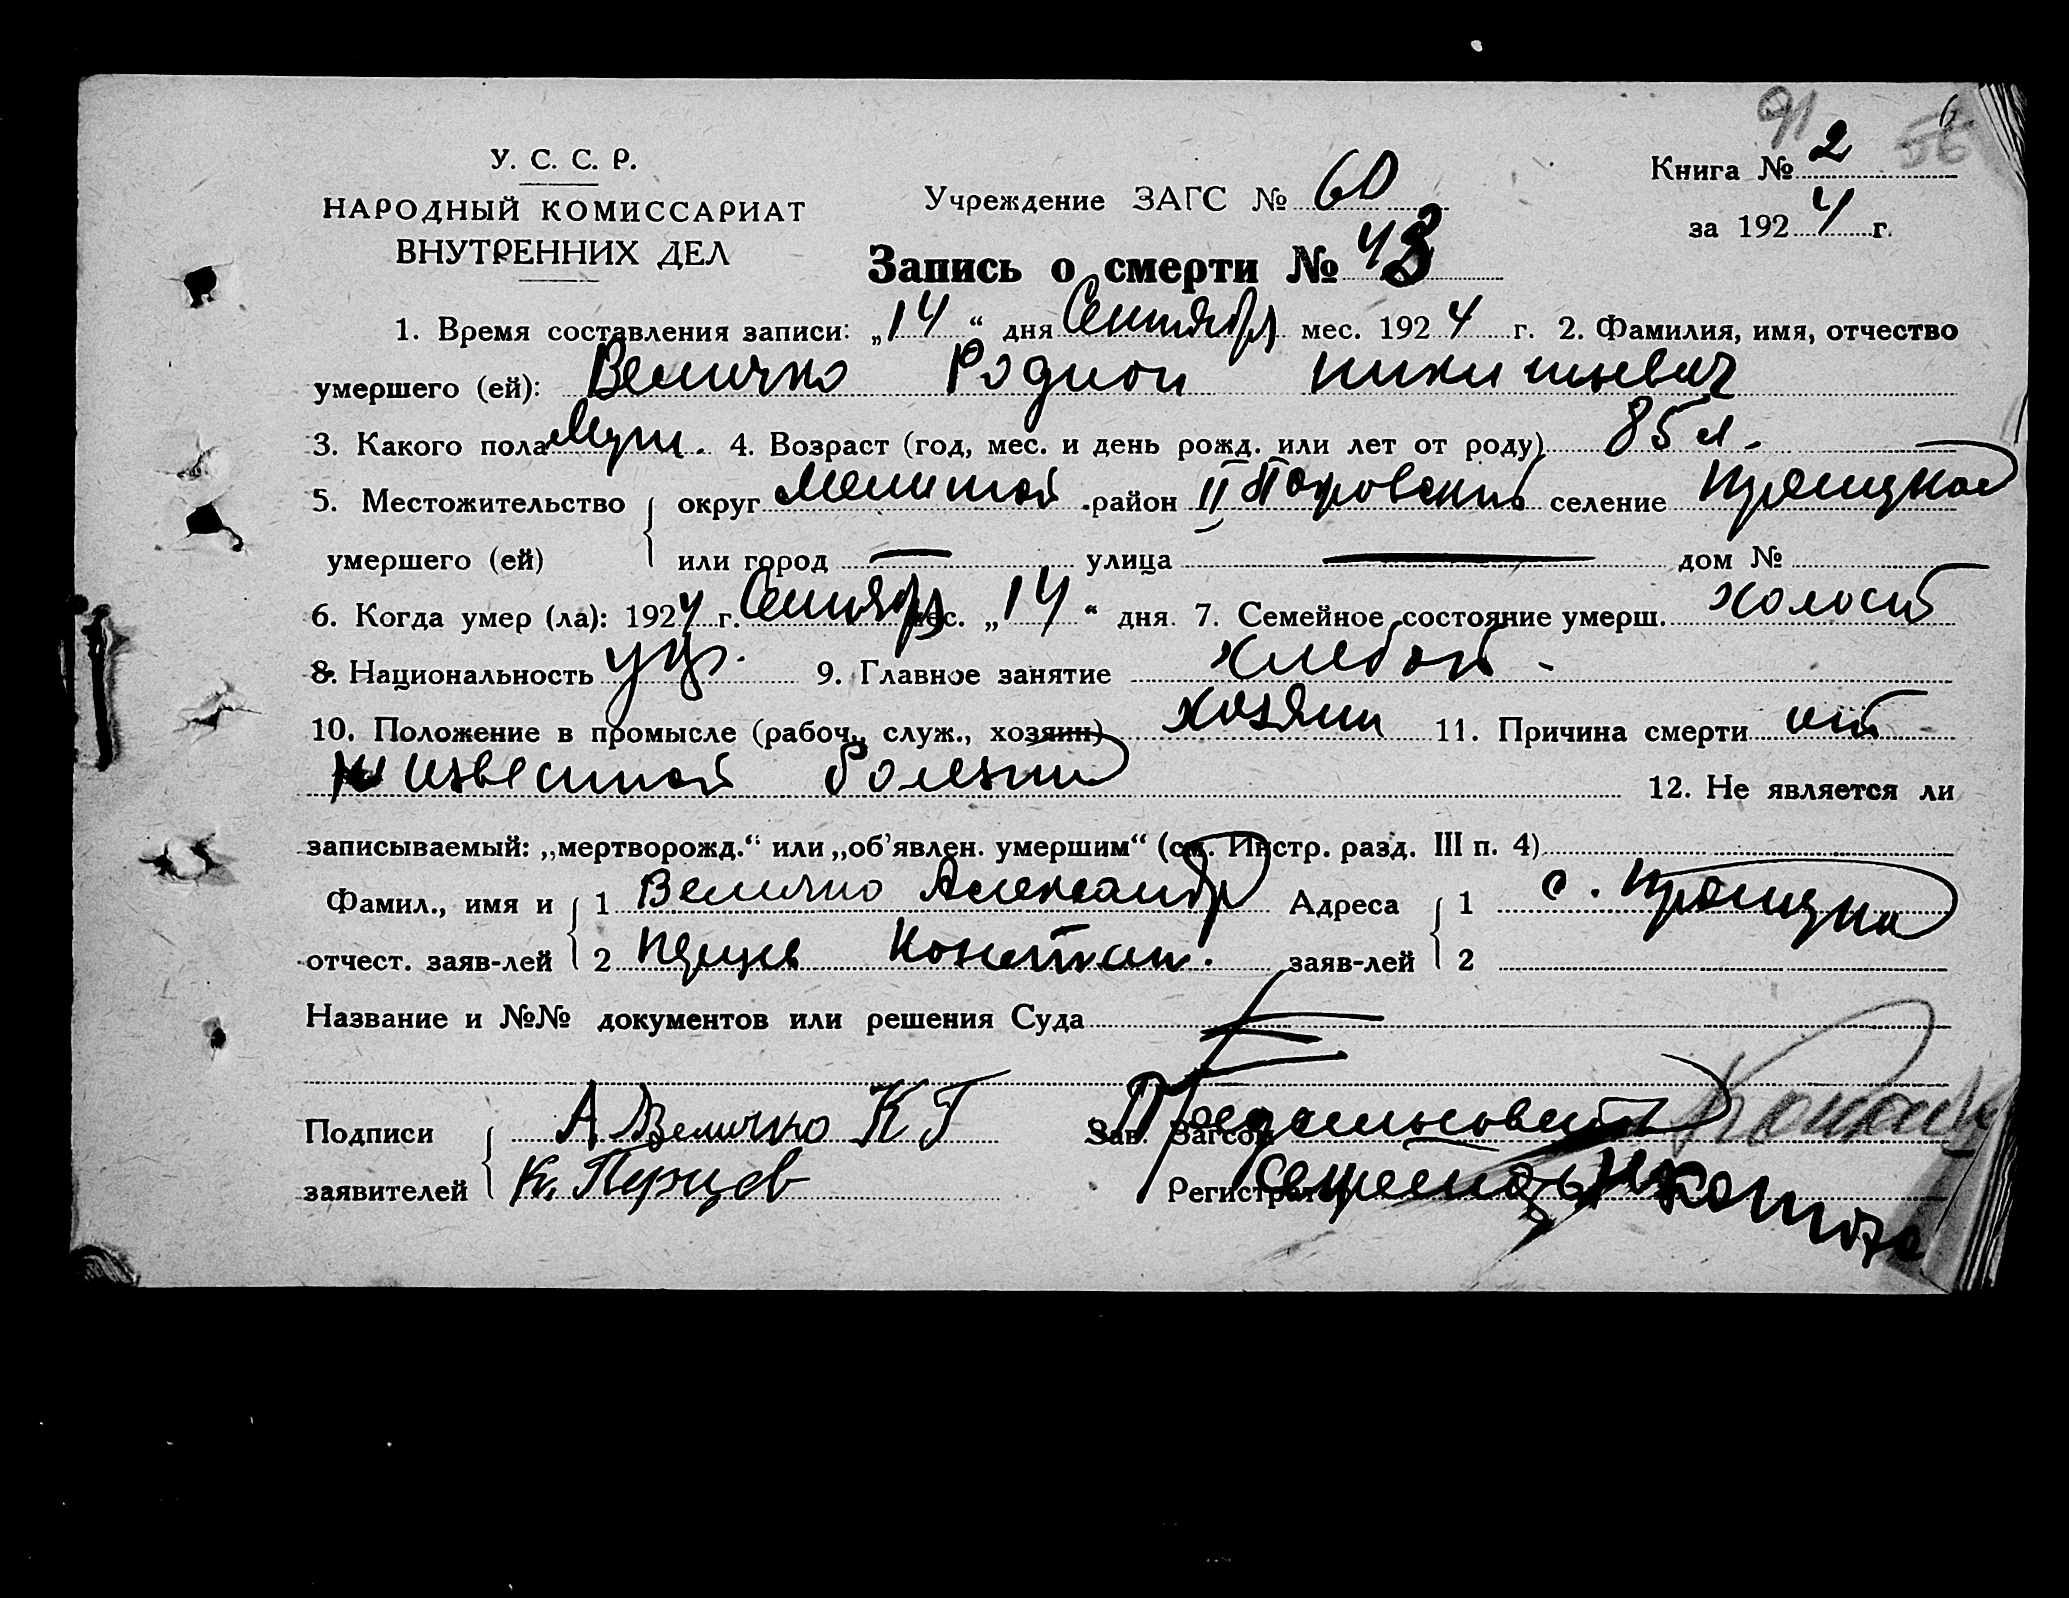 91 6
56
У. С. С. Р.
НАРОДНЫЙ КОМИССАРИАТ
ВНУТРЕННИХ ДЕЛ
Учреждение ЗАГС № 60
Книга № 2
за 1924 г.
Запись о смерти № 43
1. Время составления записи: „14“ дня Сентября мес. 1924 г. 2. Фамилия, имя, отчество
умершего (ей): Величко Родион Никитьевич
3. Какого пола Муж. 4. Возраст (год, мес. и день рожд. или лет от роду) 85 л.
5. Местожительство округ Мелитой район II Покровский селение
умершего (ей) или город — улица — дом №
6. Когда умер (ла): 1924 г. Сентября мес. „14“ дня. 7. Семейное состояние умерш. холост
8. Национальность укр. 9. Главное занятие хлебоп.
10. Положение в промысле (рабоч., служ., хозяин) хозяин 11. Причина смерти от
неизвестной болезни 12. Не является ли
записываемый: „мертворожд.“ или „об’явлен. умершим“ (см. Инстр. разд. III п. 4)
Фамил., имя и 1 Величко Александр Адреса 1 с.
отчест. заяв-лей 2 Констан. заяв-лей 2
Название и №№ документов или решения Суда
Подписи А Величко К Г Зав. Загсом Предсельсовета
заявителей К. Перцев Регистратор Секретарь